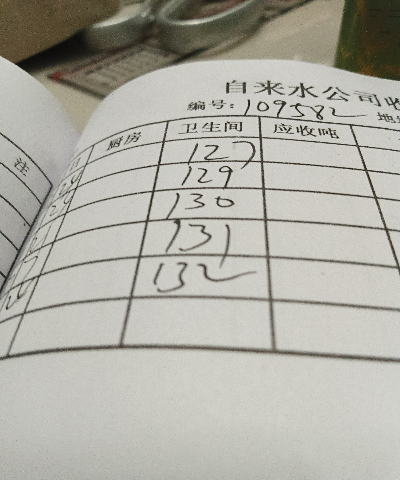 自来水公司收
编号: 109582 地
注
厨房 卫生间 应收吨
127
129
130
131
132